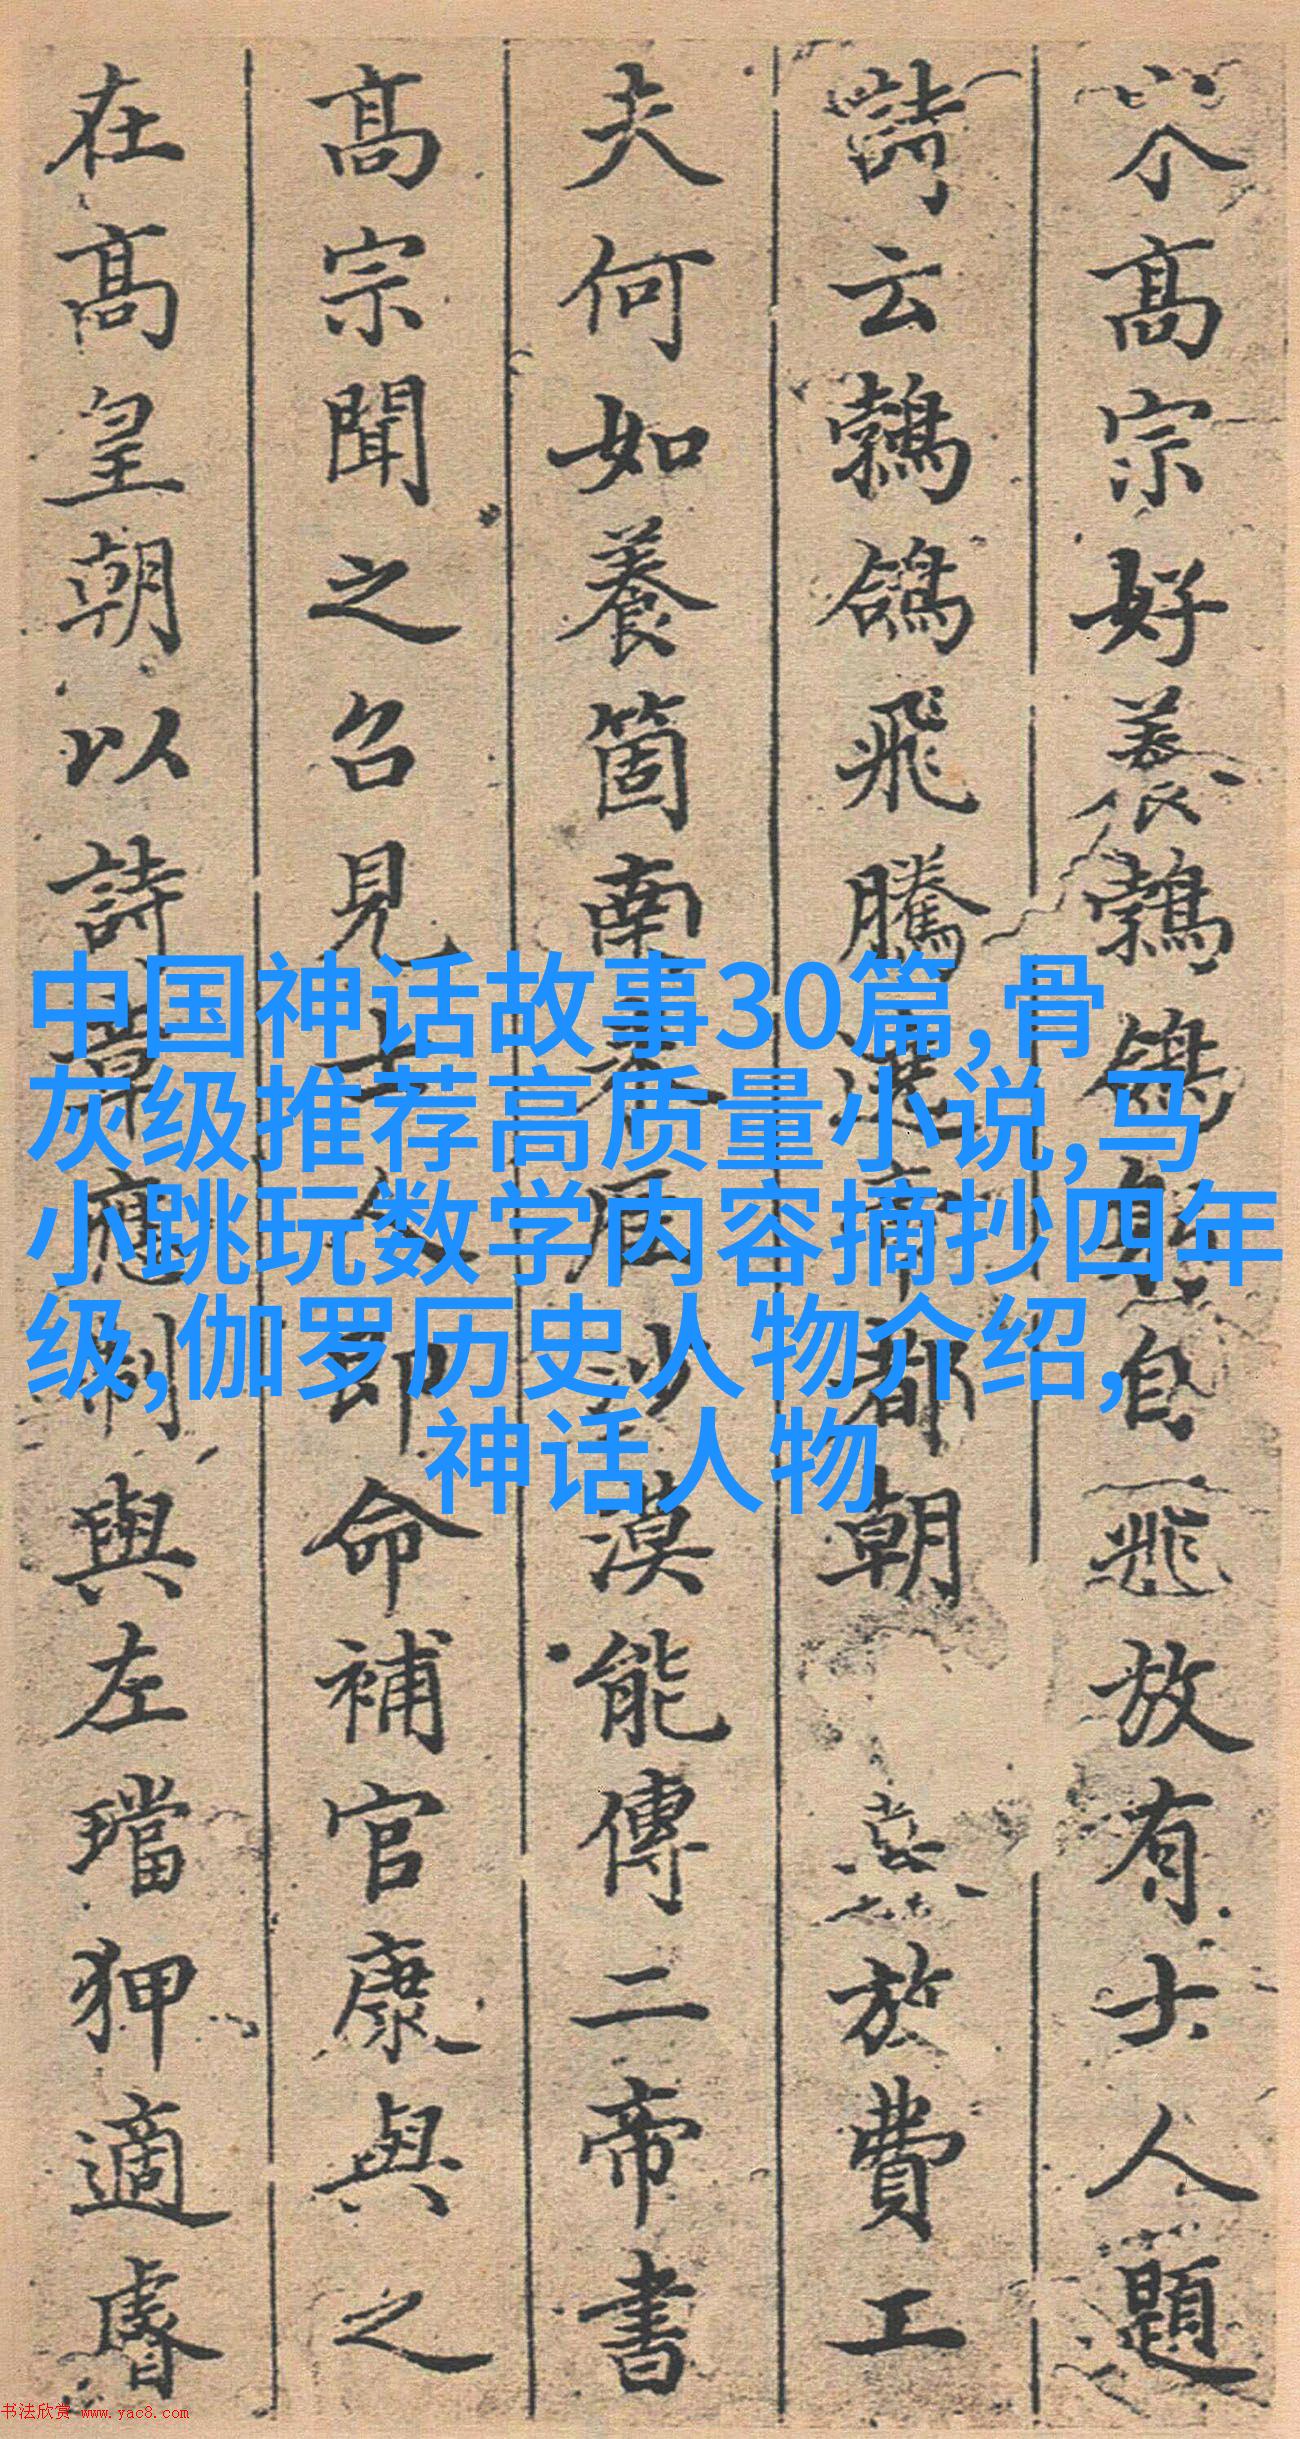 宋高宗好養鵓鴿躬自飛放有士人題
詩云鵓鴿飛騰遶帝都朝暮放費工
夫何如養箇南來鴈沙漠能傳二帝書
高宗聞之召見士人即命補官康與之
在高皇朝以詩章應制與左璫狎適睿
中国神话故事30篇,骨
灰级推荐高质量小说,马
小跳玩数学内容摘抄四年
级,伽罗历史人物介绍,
神话人物
书法欣赏 www.yac8.com